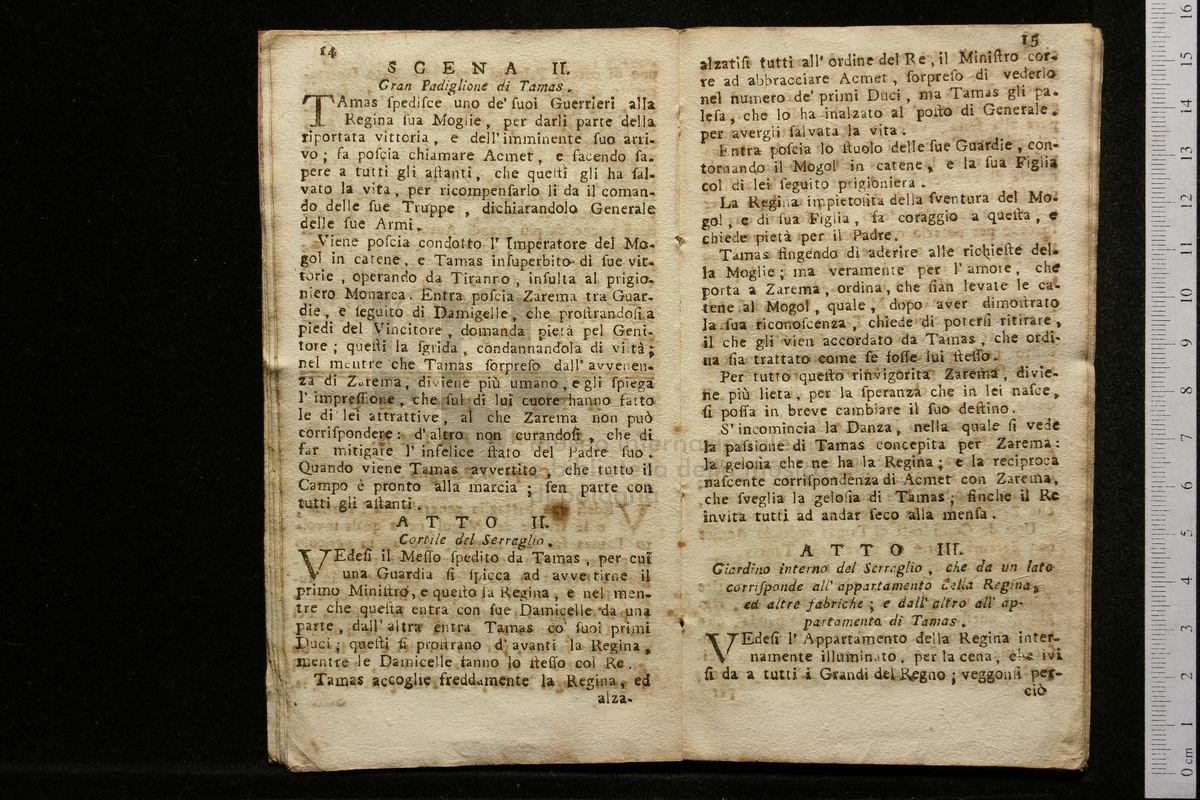 14
SCENA II.
Gran Padiglione di Tamas.
TAmas ſpediſce uno de' ſuoi Guerrieri alla
Regina ſua Moglie, per darli parte della
riportata vittoria, e dell'imminente ſuo arri-
vo; fa poſcia chiamare Acmet, e facendo ſa-
pere a tutti gli aſtanti, che queſti gli ha ſal-
vato la vita, per ricompenſarlo li da il coman-
do delle ſue Truppe, dichiarandolo Generale
delle ſue Armi.
Viene poſcia condotto l'Imperatore del Mo-
gol in catene, e Tamas inſuperbito di ſue vit-
torie, operando da Tiranno, inſulta al prigio-
niero Monarca. Entra poſcia Zarema tra Guar-
die, e ſeguito di Damigelle, che proſtrandoſi a
piedi del Vincitore, domanda pietà pel Geni-
tore; queſti la ſgrida, condannandola di viltà;
nel mentre che Tamas ſorpreſo dall'avvenen-
za di Zarema, diviene più umano, e gli ſpiega
l'impreſſione, che ſul di lui cuore hanno fatto
le di lei attrattive, al che Zarema non può
corriſpondere: d'altro non curandoſi, che di
far mitigare l'infelice ſtato del Padre ſuo.
Quando viene Tamas avvertito, che tutto il
Campo è pronto alla marcia; ſen parte con
tutti gli aſtanti.
ATTO II.
Cortile del Serraglio.
VEdeſi il Meſſo ſpedito da Tamas, per cui
una Guardia ſi ſpicca ad avvertirne il
primo Miniſtro, e queſto la Regina, e nel men-
tre che queſta entra con ſue Damicelle da una
parte, dall'altra entra Tamas co' ſuoi primi
Duci; queſti ſi proſtrano d'avanti la Regina,
mentre le Damicelle fanno lo ſteſſo col Re.
Tamas accoglie freddamente la Regina, ed
alza-
15
alzatiſi tutti all'ordine del Re, il Miniſtro cor-
re ad abbracciare Acmet, ſorpreſo di vederlo
nel numero de' primi Duci, ma Tamas gli pa-
leſa, che lo ha inalzato al poſto di Generale.
per avergli ſalvata la vita.
Entra poſcia lo ſtuolo delle ſue Guardie, con-
tornando il Mogol in catene, e la ſua Figlia
col di lei ſeguito prigioniera.
La Regina impietoſita della ſventura del Mo-
gol, e di ſua Figlia, fa coraggio a queſta, e
chiede pietà per il Padre.
Tamas fingendo di aderire alle richieſte del-
la Moglie; ma veramente per l'amore, che
porta a Zarema, ordina, che ſian levate le ca-
tene al Mogol, quale, dopo aver dimoſtrato
la ſua riconoſcenza, chiede di poterſi ritirare,
il che gli vien accordato da Tamas, che ordi-
na ſia trattato come ſe foſſe lui ſteſſo.
Per tutto queſto rinvigorita Zarema, divie-
ne più lieta, per la ſperanza che in lei naſce,
ſi poſſa in breve cambiare il ſuo deſtino.
S'incomincia la Danza, nella quale ſi vede
la paſsione di Tamas concepita per Zarema:
la geloſia che ne ha la Regina; e la reciproca
naſcente corriſpondenza di Acmet con Zarema,
che ſveglia la geloſia di Tamas; finche il Re
invita tutti ad andar ſeco alla menſa.
ATTO III.
Giardino interno del Serraglio, che da un lato
corriſponde all'appartamento della Regina,
ed altre fabriche; e dall'altro all'ap-
partamento di Tamas.
VEdeſi l'Appartamento della Regina inter-
namente illuminato, per la cena, che ivi
ſi da a tutti i Grandi del Regno; veggonſi per-
ciò
0 cm 1 2 3 4 5 6 7 8 9 10 11 12 13 14 15 16